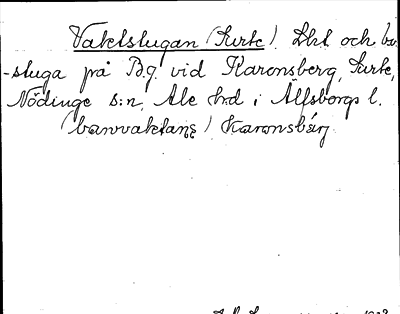 Vaktstugan (Surte). Lht. och ban-
-stuga på B.g. vid Karonsberg, Surte,
Nödinge s:n, Ale hrd i Älfsborgs l.
(banvaktans) Karonsbärj